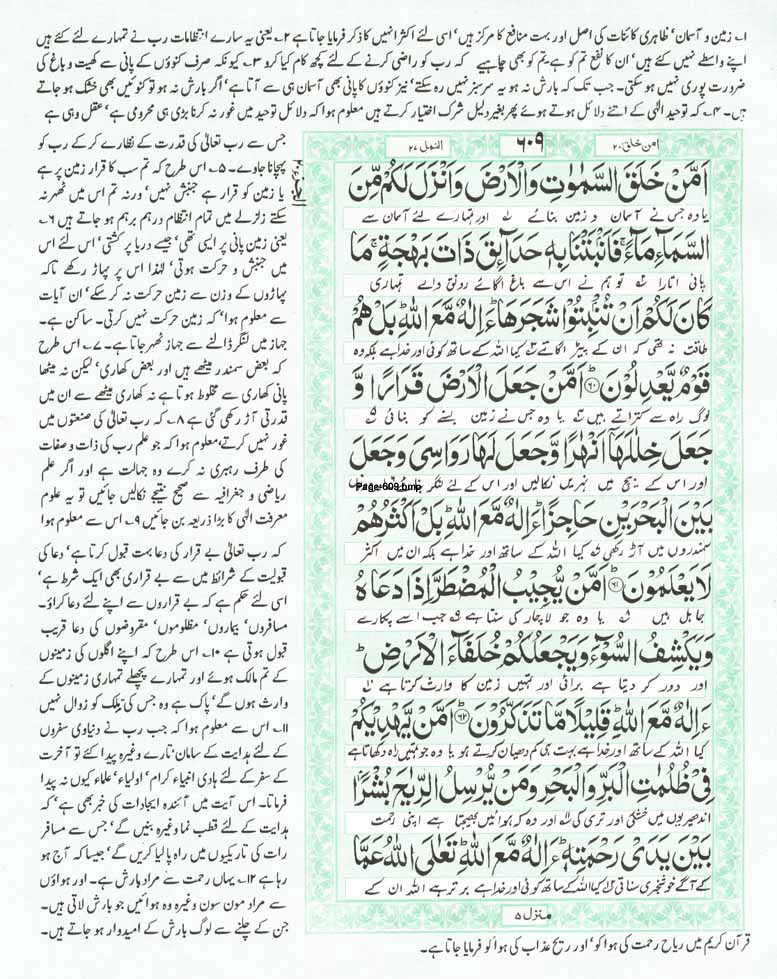 ۱۔ زمین و آسمان‘ ظاہری کائنات کی اصل اور بہت منافع کا مرکز ہیں‘ اسی لئے اکثر انہیں کا ذکر فرمایا جاتا ہے ۲۔ یعنی یہ سارے انتظامات رب نے تمہارے لئے کئے ہیں
اپنے واسطے نہیں کئے ہیں‘ ان کا نفع تم کو ہے‘ تم کو بھی چاہیے کہ رب کو راضی کرنے کے لئے کچھ کام کیا کرو ۳۔ کیونکہ صرف کنوؤں کے پانی سے کھیت و باغ کی
ضرورت پوری نہیں ہو سکتی۔ جب تک کہ بارش نہ ہو یہ سرسبز نہیں رہ سکتے‘ نیز کنوؤں کا پانی بھی آسمان ہی سے آتا ہے‘ اگر بارش نہ ہو تو کنوئیں بھی خشک ہو جاتے
ہیں۔ ۴۔ کہ توحید الٰہی کے اتنے دلائل ہوتے ہوئے پھر بغیر دلیل شرک اختیار کرتے ہیں معلوم ہوا کہ دلائل توحید میں غور نہ کرنا بڑی ہی محرومی ہے‘ عقل وہی ہے
جس سے رب تعالیٰ کی قدرت کے نظارے کر کے رب کو
پہچانا جاوے۔ ۵۔ اس طرح کہ تم سب کا قرار زمین پر ہے
یا زمین کو قرار ہے جنبش نہیں‘ ورنہ تم اس میں ٹھہر نہ
سکتے زلزلے میں تمام انتظام درہم برہم ہو جاتے ہیں ۶۔
یعنی زمین پانی پر ایسی تھی‘ جیسے دریا پر کشتی‘ اس لئے اس
میں جنبش و حرکت ہوتی‘ لہٰذا اس پر پہاڑ رکھے تاکہ
پہاڑوں کے وزن سے زمین حرکت نہ کر سکے‘ ان آیات
سے معلوم ہوا‘ کہ زمین حرکت نہیں کرتی۔ ساکن ہے۔
جہاز میں لنگر ڈالنے سے جہاز ٹھہر جاتا ہے۔ ۷۔ اس طرح
کہ بعض سمندر میٹھے ہیں اور بعض کھاری‘ لیکن نہ میٹھا
پانی کھاری سے مخلوط ہوتا ہے نہ کھاری میٹھے سے ان میں
قدرتی آڑ رکھی گئی ہے ۸۔ کہ رب تعالیٰ کی صنعتوں میں
غور نہیں کرتے‘ معلوم ہوا کہ جو علم رب کی ذات و صفات
کی طرف رہبری نہ کرے وہ جہالت ہے اور اگر علم
ریاضی و جغرافیہ سے صحیح نتیجے نکالیں جائیں تو یہ علوم
معرفت الٰہی کا بڑا ذریعہ بن جائیں ۹۔ اس سے معلوم ہوا
کہ رب تعالیٰ بے قرار کی دعا بہت قبول کرتا ہے‘ دعا کی
قبولیت کے شرائط میں سے بے قراری بھی ایک شرط ہے‘
اسی لئے حکم ہے کہ بے قراروں سے اپنے لئے دعا کراؤ۔
مسافروں‘ بیماروں‘ مظلوموں‘ مقروضوں کی دعا قریب
قبول ہوتی ہے ۱۰۔ اس طرح کہ اپنے اگلوں کی زمینوں
کے تم مالک ہوئے اور تمہارے پچھلے تمہاری زمینوں کے
وارث ہوں گے‘ پاک ہے وہ جس کی ملک کو زوال نہیں
۱۱۔ اس سے معلوم ہوا کہ جب رب نے دنیاوی سفروں
کے لئے ہدایت کے سامان‘ تارے وغیرہ پیدا کئے تو آخرت
کے سفر کے لئے ہادی انبیاء کرام‘ اولیاء‘ علماء کیوں نہ پیدا
فرماتا۔ اس آیت میں آئندہ ایجادات کی خبر بھی ہے‘ کہ
ہدایت کے لئے قطب نما وغیرہ بنیں گے‘ جس سے مسافر
رات کی تاریکیوں میں راہ پالیا کریں گے‘ جیسا کہ آج ہو
رہا ہے ۱۲۔ یہاں رحمت سے مراد بارش ہے۔ اور ہواؤں
سے مراد مون سون وغیرہ وہ ہوائیں جو بارش لاتی ہیں۔
جن کے چلنے سے لوگ بارش کے امیدوار ہو جاتے ہیں۔
امن خلق ۲۰
۶۰۹
النمل ۲۷
اَمَّنْ خَلَقَ السَّمٰوٰتِ وَالْاَرْضَ وَاَنْزَلَ لَكُمْ مِّنَ
یا وہ جس نے آسمان و زمین بنائے اور تمہارے لئے آسمان سے
السَّمَآءِ مَآءً ۚ فَاَنْۢبَتْنَا بِهٖ حَدَآئِقَ ذَاتَ بَهْجَةٍ ۚ مَا
پانی اتارا تو ہم نے اس سے باغ اگائے رونق والے تمہاری
كَانَ لَكُمْ اَنْ تُنْۢبِتُوْا شَجَرَهَا ؕ ءَاِلٰهٌ مَّعَ اللّٰهِ ؕ بَلْ هُمْ
طاقت نہ تھی کہ ان کے پیڑ اگاتے کیا اللہ کے ساتھ کوئی اور خدا ہے بلکہ وہ
قَوْمٌ يَّعْدِلُوْنَ ؕ﴿۶۰﴾ اَمَّنْ جَعَلَ الْاَرْضَ قَرَارًا وَّ
لوگ راہ سے کتراتے ہیں یا وہ جس نے زمین بسنے کو بنائی
جَعَلَ خِلٰلَهَاۤ اَنْهٰرًا وَّجَعَلَ لَهَا رَوَاسِيَ وَجَعَلَ
اور اس کے بیچ میں نہریں نکالیں اور اس کے لئے لنگر
Page-609.bmp
بَيْنَ الْبَحْرَيْنِ حَاجِزًا ؕ ءَاِلٰهٌ مَّعَ اللّٰهِ ؕ بَلْ اَكْثَرُهُمْ
سمندروں میں آڑ رکھی کیا اللہ کے ساتھ اور خدا ہے بلکہ ان میں اکثر
لَا يَعْلَمُوْنَ ؕ﴿۶۱﴾ اَمَّنْ يُّجِيْبُ الْمُضْطَرَّ اِذَا دَعَاهُ
جاہل ہیں یا وہ جو لاچار کی سنتا ہے جب اسے پکارے
وَيَكْشِفُ السُّوْٓءَ وَيَجْعَلُكُمْ خُلَفَآءَ الْاَرْضِ ؕ
اور دور کر دیتا ہے برائی اور تمہیں زمین کا وارث کرتا ہے
ءَاِلٰهٌ مَّعَ اللّٰهِ ؕ قَلِيْلًا مَّا تَذَكَّرُوْنَ ؕ﴿۶۲﴾ اَمَّنْ يَّهْدِيْكُمْ
کیا اللہ کے ساتھ اور خدا ہے بہت ہی کم دھیان کرتے ہو یا وہ جو تمہیں راہ دکھاتا ہے
فِيْ ظُلُمٰتِ الْبَرِّ وَالْبَحْرِ وَمَنْ يُّرْسِلُ الرِّيٰحَ بُشْرًۢا
اندھیریوں میں خشکی اور تری کی اور وہ کہ ہوائیں بھیجتا ہے اپنی رحمت
بَيْنَ يَدَيْ رَحْمَتِهٖ ؕ ءَاِلٰهٌ مَّعَ اللّٰهِ ؕ تَعٰلَى اللّٰهُ عَمَّا
کے آگے خوشخبری سناتی کیا اللہ کے ساتھ کوئی اور خدا ہے برتر ہے اللہ ان کے
منزل ۵
قرآن کریم میں ریاح رحمت کی ہوا کو‘ اور ریح عذاب کی ہوا کو فرمایا جاتا ہے۔